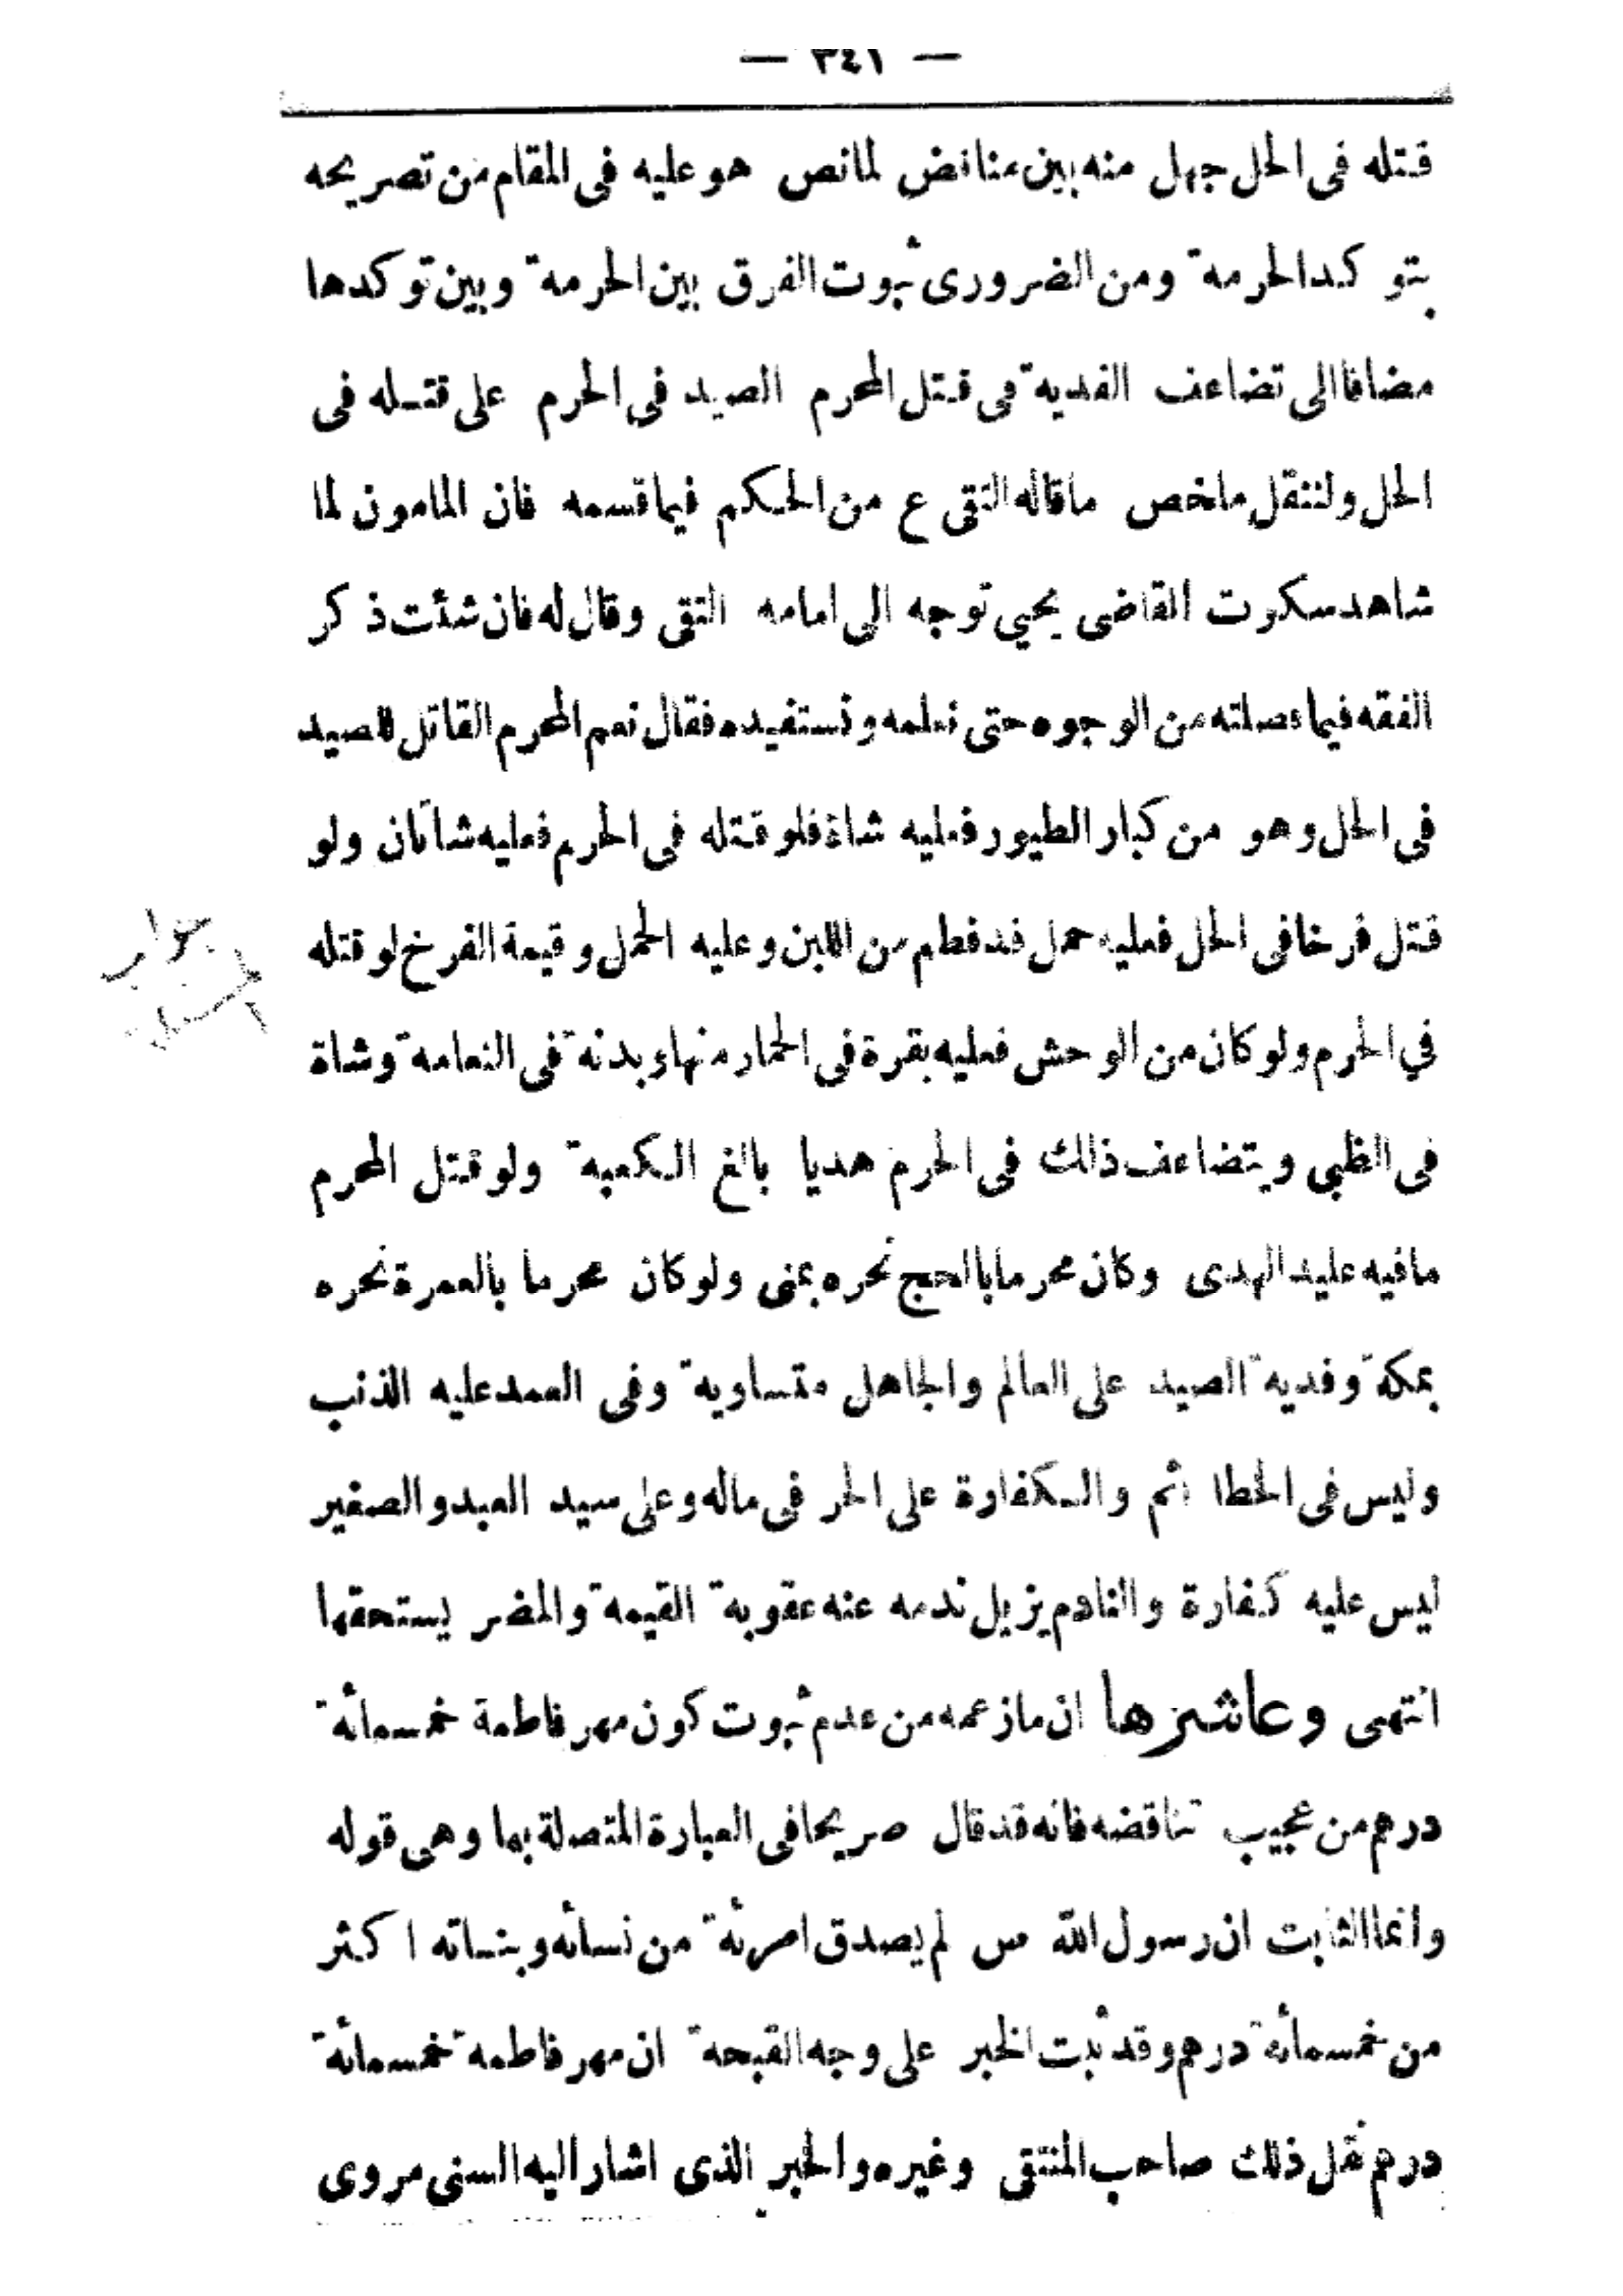 — ٣٤١ —
قتله فى الحل جهل منه بين مناقض لمانص هو عليه فى المقام من تصريحه
بتو كد الحرمة ومن الضرورى ثبوت الفرق بين الحرمة وبين توكدها
مضافا الى تضاعف الفدية فى قتل المحرم الصيد في الحرم على قتله فى
الحل ولننقل ملخص ماقاله التقى ع من الحكم فيما قسمه فان المامون لما
شاهد سكوت القاضى يحيي توجه الى امامه التقى وقال له فان شئت ذكر
الفقه فيما فصلته من الوجوه حتى نعلمه ونستفيده فقال نعم المحرم القاتل للصيد
فى الحل وهو من كبار الطيور فعليه شاة فلو قتله فى الحرم فعليه شاتان ولو
قتل فرخا فى الحل فعليه حمل قد فطم من اللبن وعليه الحمل وقيمة الفرخ لو قتله
في الحرم ولو كان من الوحش فعليه بقرة فى الحمار منها وبدنة فى النعامة وشاة
فى الظبى ويتضاعف ذلك فى الحرم هديا بالغ الكعبة ولو قتل المحرم
مافيه عليه الهدى وكان محرما بالحج نحره بمنى ولو كان محرما بالعمرة نحره
بمكة وفدية الصيد على العالم والجاهل متساوية وفى العمد عليه الذنب
وليس فى الخطا اثم والكفارة على الحر فى ماله وعلى سيد العبد والصغير
ليس عليه كفارة والنادم يزيل ندمه عنه عقوبة القيمة والمضر يستحقها
انتهى وعاشرها ان مازعمه من عدم ثبوت كون مهر فاطمة خمسمائة
درهم من عجيب تناقضه فانه قد قال صريحا فى العبارة المتصلة بها وهى قوله
وانما الثابت ان رسول الله ص لم يصدق امرئة من نسائه وبناته اكثر
من خمسمائة درهم وقد ثبت الخبر على وجه القبحة ان مهر فاطمة خمسمائة
درهم نقل ذلك صاحب المنتقى وغيره والخبر الذى اشار اليه السنى مروى
جواب